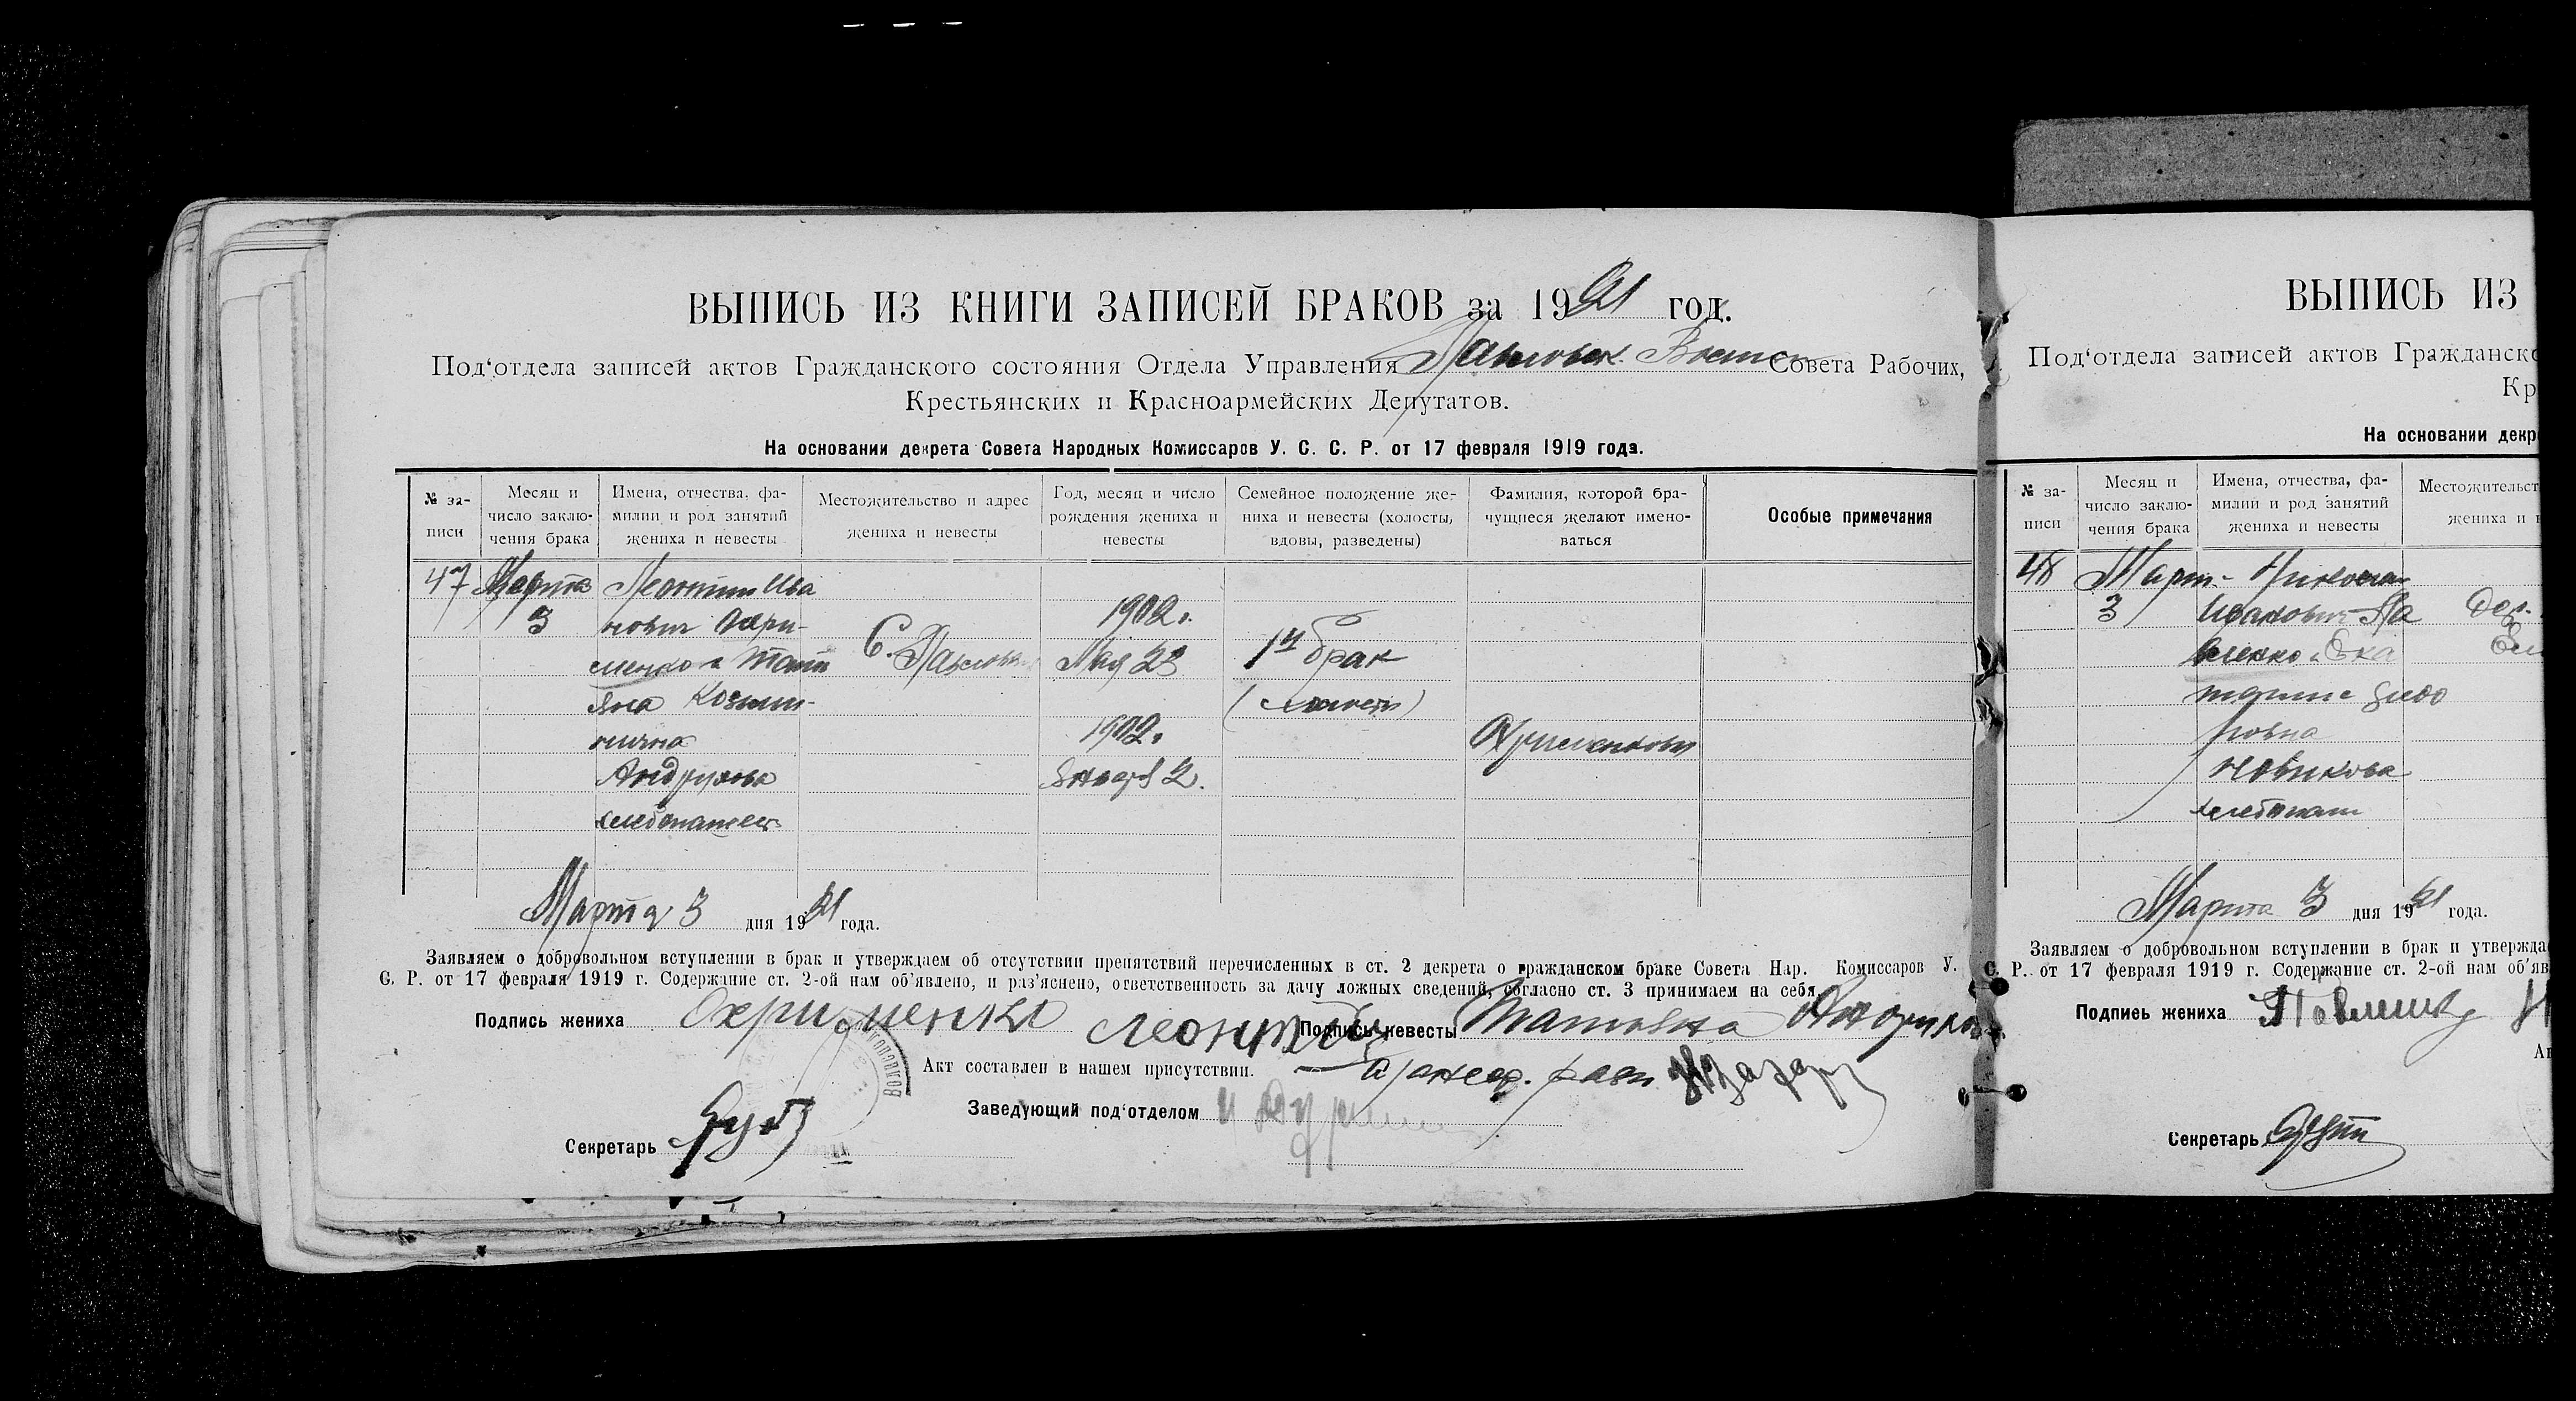 ВЫПИСЬ ИЗ КНИГИ ЗАПИСЕЙ БРАКОВ за 1921 год.
Под‘отдела записей актов Гражданского состояния Отдела Управления Павловск. Совета Рабочих,
Крестьянских и Красноармейских Депутатов.
На основании декрета Совета Народных Комиссаров У. С. С. Р. от 17 февраля 1919 года.
№ за-
писи
Месяц и
число заклю-
чения брака
Имена, отчества, фа-
милии и род занятий
жениха и невесты
Местожительство и адрес
жениха и невесты
Год, месяц и число
рождения жениха и
невесты
Семейное положение же-
ниха и невесты (холосты,
вдовы, разведены)
Фамилия, которой бра-
чущиеся желают имено-
ваться
Особые примечания
47
Марта
3
Леонтий Ива
нович Охри-
менко и Тать
яна Козьми-
нична
Андрухова
хлебопашест
С. Павловка
1902.
Мая 23
1902.
Января 2.
1й брак
(холосты)
Охрименковы
Марта 3 дня 1921 года.
Заявляем о добровольном вступлении в брак и утверждаем об отсутствии препятствий перечисленных в ст. 2 декрета о гражданском браке Совета Нар. Комиссаров У.
С. Р. от 17 февраля 1919 г. Содержание ст. 2-ой нам об‘явлено, и раз‘яснено, ответственность за дачу ложных сведений, согласно ст. 3 принимаем на себя
Подпись жениха Охрименко Леонтий Подпись невесты Татьяна
Акт составлен в нашем присутствии.
Заведующий под‘отделом
Секретарь
ВЫПИСЬ ИЗ
Под‘отдела записей актов Гражданско
Кр
На основании декр
№ за-
писи
Месяц и
число заклю-
чения брака
Имена, отчества, фа-
милии и род занятий
жениха и невесты
Местожительст
жениха и н
48
Март-
3
Николай
Иванович Па
вленко и Ека
терина Федо
ровна
Новикова
хлебопаш
Дер.
Марта 3 дня 1921 года.
Заявляем о добровольном вступлении в брак и утвержда
С. Р. от 17 февраля 1919 г. Содержание ст. 2-ой нам об‘яв
Подпись жениха Павленко Н
Ак
Секретарь